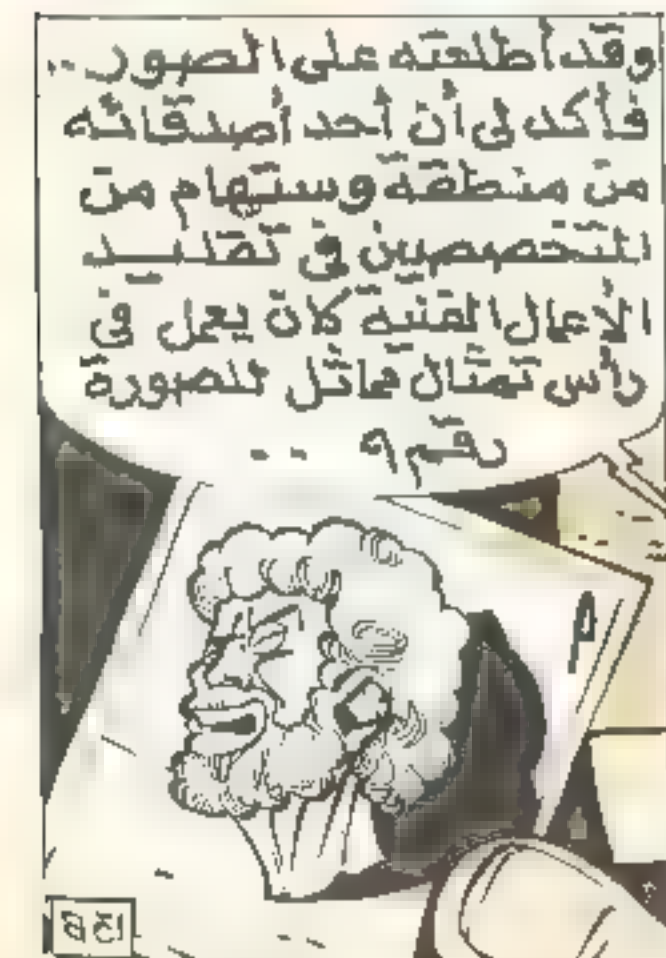 وقد أطلعته على الصور ..
فأكد لي أن أحد أصدقائه
من منطقة وستهام من
المتخصصين في تقليد
الأعمال الفنية كان يعمل في
رأس تمثال مماثل للصورة
رقم ٩ ..